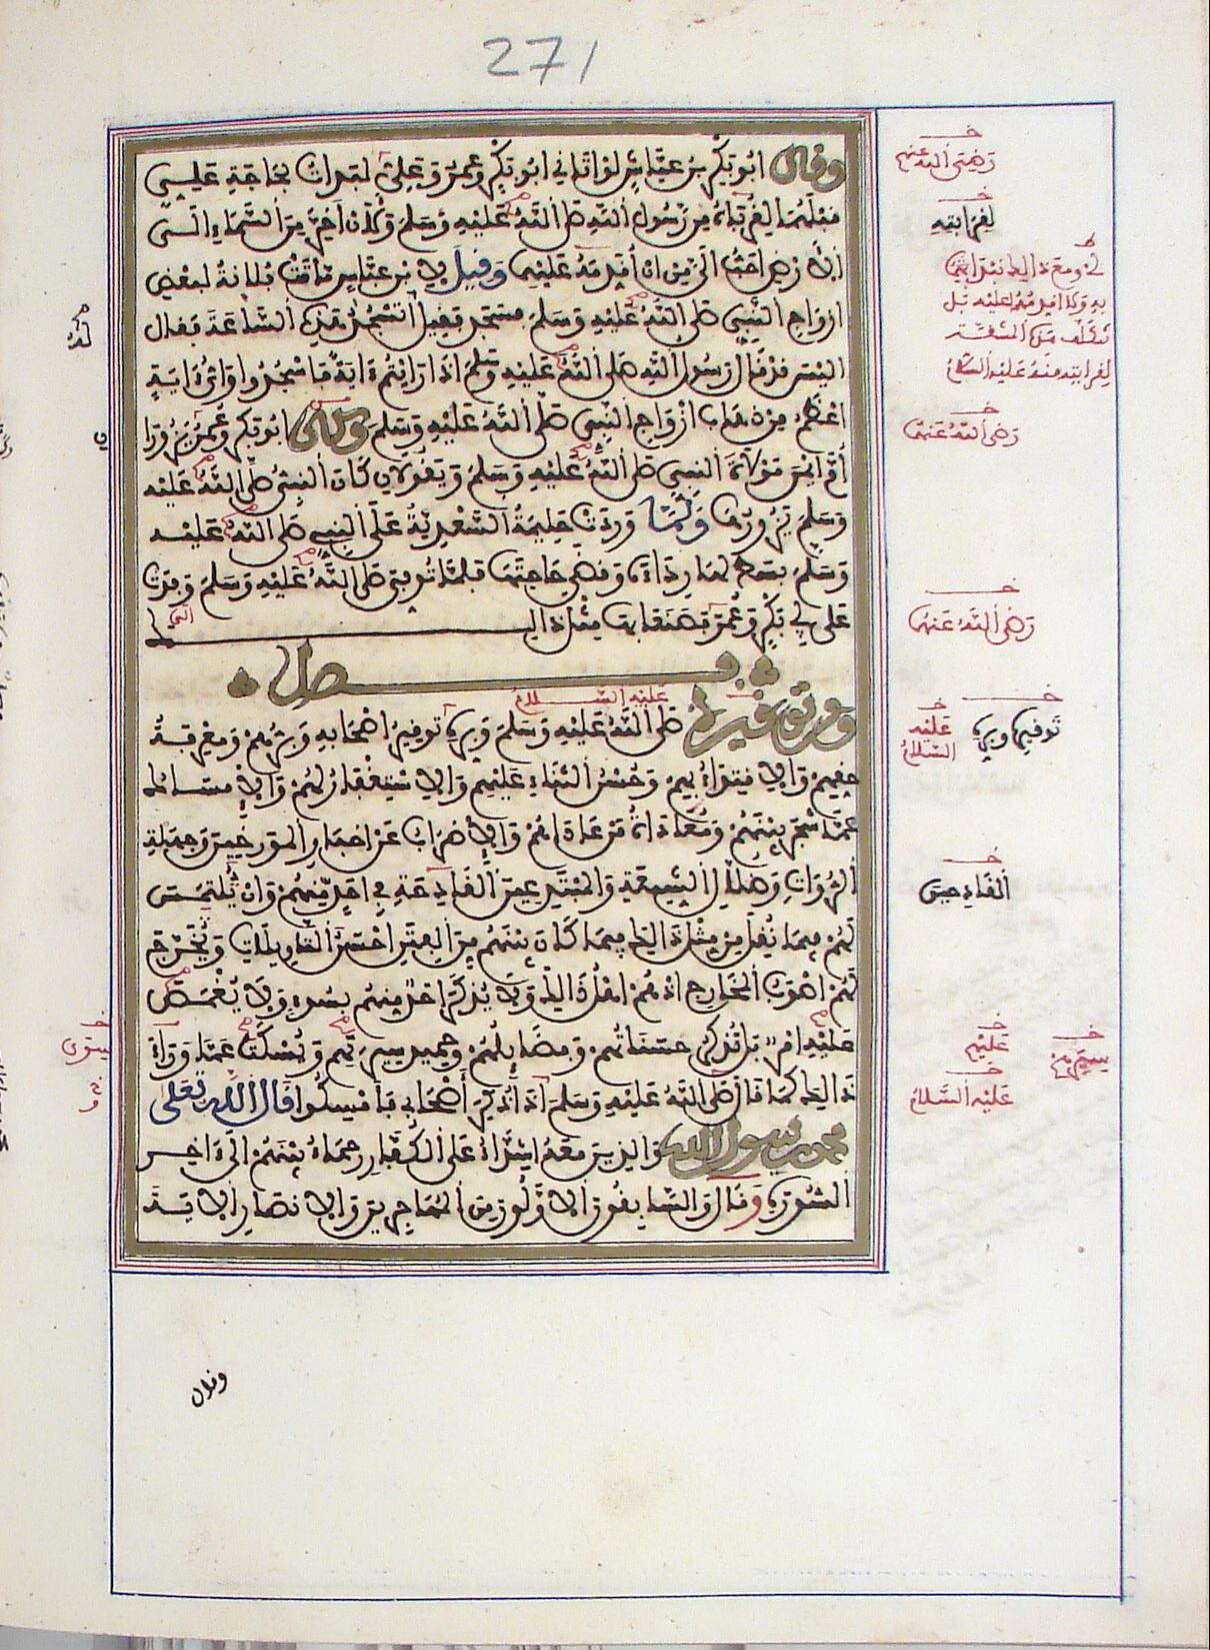 271
وقال ابو بكر بن عياش لو اتاني ابو بكر وعمر وعلي لبدات بحاجة علي
قبلهما لقرابته من رسول الله صلى الله عليه وسلم ولان اخر من السماء الى
الارض احب الي من ان اقدمه عليهما وقيل لابن عباس ماتت فلانة لبعض
ازواج النبي صلى الله عليه وسلم فسجد فقيل اتسجد هذه الساعة فقال
اليس قد قال رسول الله صلى الله عليه وسلم اذا رايتم ءاية فاسجدوا واي ءاية
اعظم من ذهاب ازواج النبي صلى الله عليه وسلم وكان ابو بكر وعمر يزوران
ام ايمن مولاة النبي صلى الله عليه وسلم ويقولان كان النبي صلى الله عليه
وسلم يزورها ولما وردت حليمة السعدية على النبي صلى الله عليه
وسلم بسط لها رداءه وقضى حاجتها فلما توفي صلى الله عليه وسلم وفدت
على ابي بكر وعمر فصنعا بها مثل ذلك
فصل
ومن توقيره صلى الله عليه وسلم وبره توقير اصحابه وبرهم ومعرفة
حقهم والاقتداء بهم وحسن الثناء عليهم والاستغفار لهم والامساك
عما شجر بينهم ومعاداة من عاداهم والاضراب عن اخبار المورخين وجهلة
الرواة وضلال الشيعة والمبتدعين القادحة في احد منهم وان يلتمس
لهم فيما نقل من مثل ذلك فيما كان بينهم من الفتن احسن التاويلات ويخرج
لهم اصوب المخارج اذ هم اهل ذلك ولا يذكر احد منهم بسوء ولا يغمص
عليه امر بل تذكر حسناتهم وفضايلهم وحميد سيرهم ويسكت عما وراء
ذلك كما قال صلى الله عليه وسلم اذا ذكر اصحابي فامسكوا قال الله تعلى
محمد رسول الله والذين معه اشداء على الكفار رحماء بينهم الى ءاخر
السورة وقال والسابقون الاولون من المهاجرين والانصار الاية
عليه السلام
رضي الله عنهم
لقرابته
رضي الله عنهما
رضي الله عنهما
توقيرها وبره
عليه السلام
القادحين
عليهم
سيرهم
عليه السلام
وقال